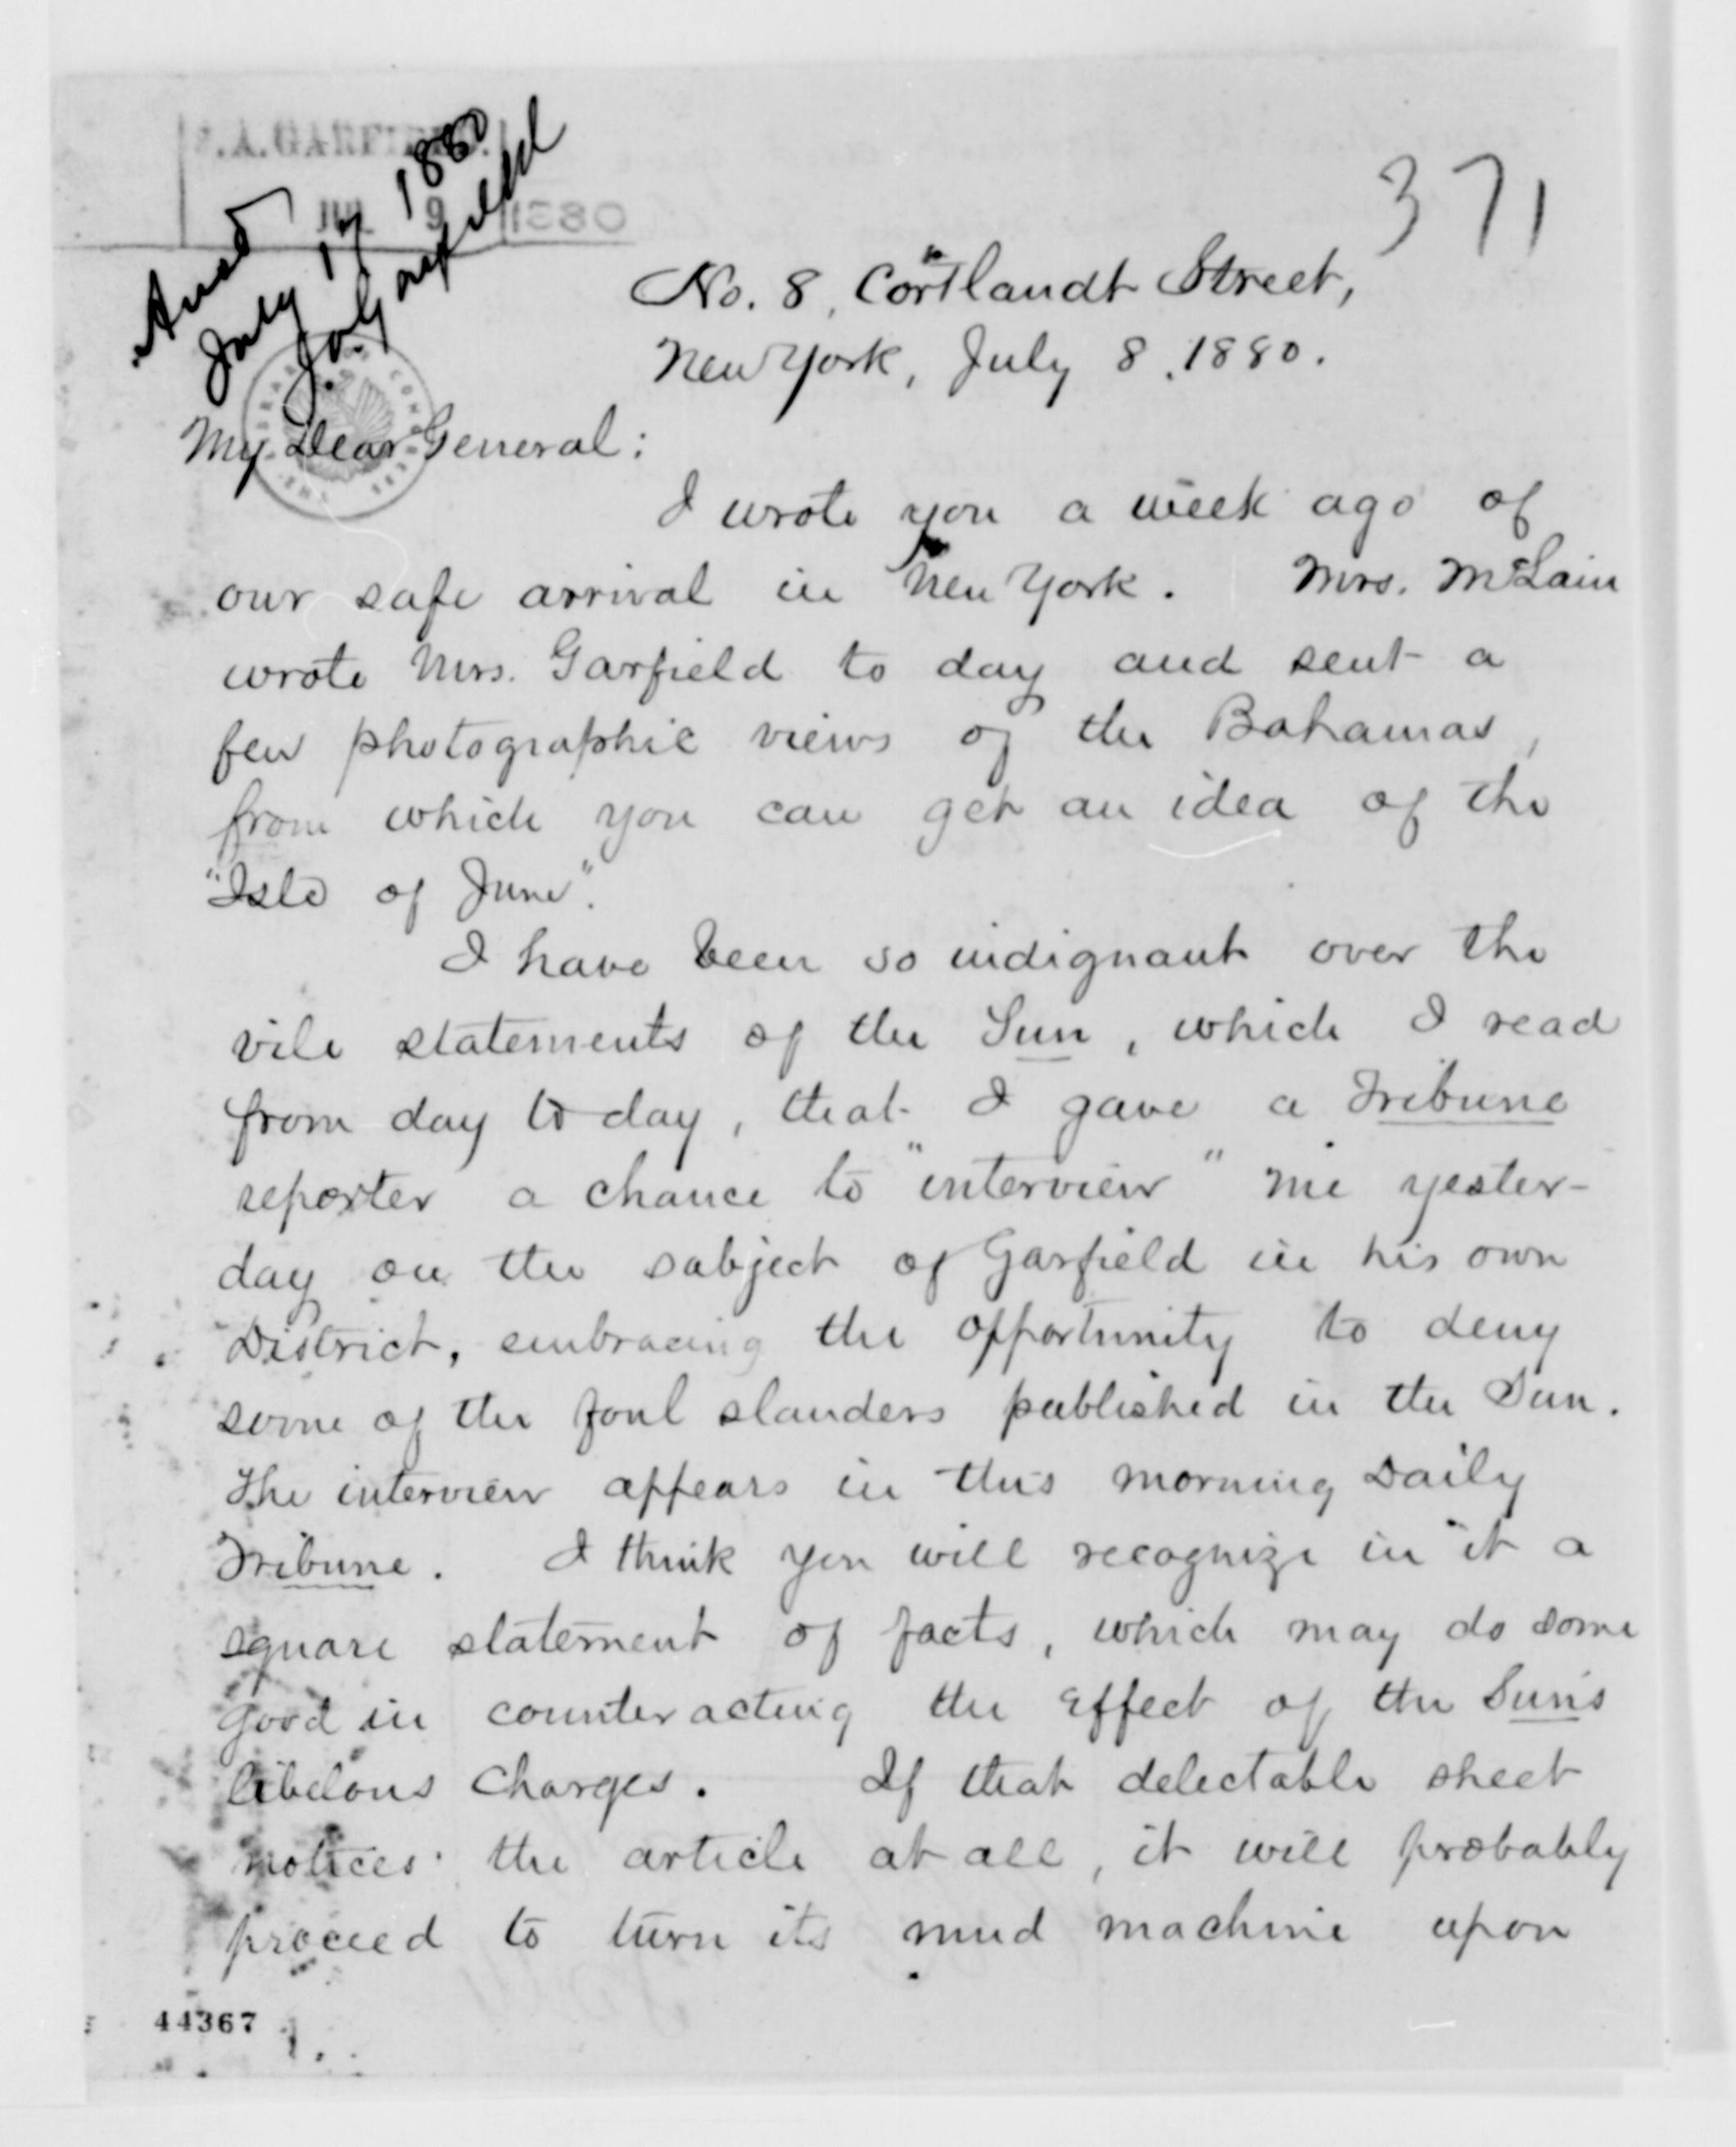 J.A. GARFIELD.
JUL 9 1880
Ansd
July 17 1880
JaGarfield
371
No. 8, Cortlandt Street,
New York, July 8, 1880.
My Dear General:
I wrote you a week ago of
our safe arrival in New York. Mrs. McLain
wrote Mrs. Garfield to day and sent a
few photographic views of the Bahamas,
from which you can get an idea of the
"Isle of June".
I have been so indignant over the
vile statements of the Sun, which I read
from day to day, that I gave a Tribune
reporter a chance to "interview" me yester-
day on the subject of Garfield in his own
District, embracing the opportunity to deny
some of the foul slanders published in the Sun.
The interview appears in this morning Daily
Tribune. I think you will recognize in it a
square statement of facts, which may do some
good in counteracting the effect of the Sun's
libelous charges. If that delectable sheet
notices the article at all, it will probably
proceed to turn its mud machine upon
44367